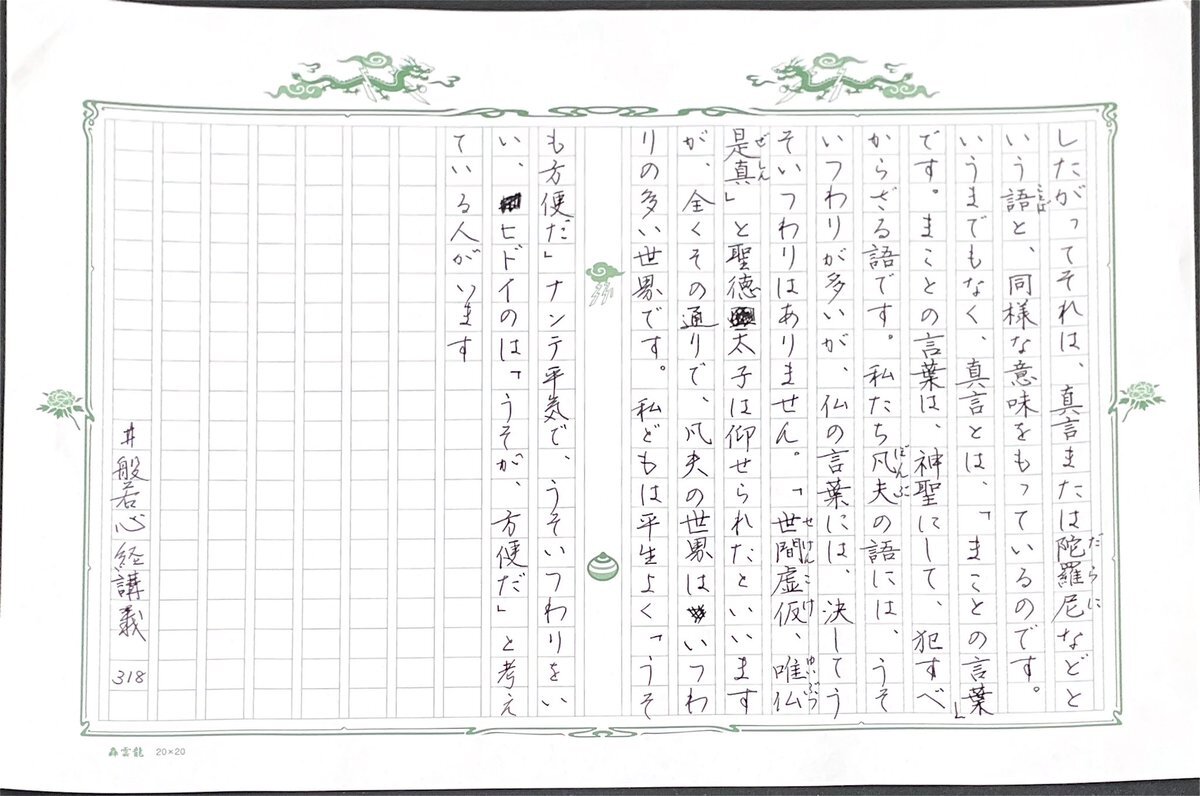 したがってそれは、真言または陀羅尼などと
だらに
いう語と、同様な意味をもっているのです。
ことば
いうまでもなく、真言とは、「まことの言葉」
です。まことの言葉は、神聖にして、犯すべ
からざる語です。私たち凡夫の語には、うそ
ぼんぶ
いつわりが多いが、仏の言葉には、決してう
そいつわりはありません。「世間虚仮、唯仏
せけんこけ ゆいぶつ
是真」と聖徳太子は仰せられたといいます
ぜしん
が、全くその通りで、凡夫の世界はいつわ
りの多い世界です。私どもは平生よく「うそ
も方便だ」ナンテ平気で、うそいつわりをい
い、ヒドイのは「うそが、方便だ」と考え
ている人がいます
#般若心経講義 318
轟雲龍 20×20